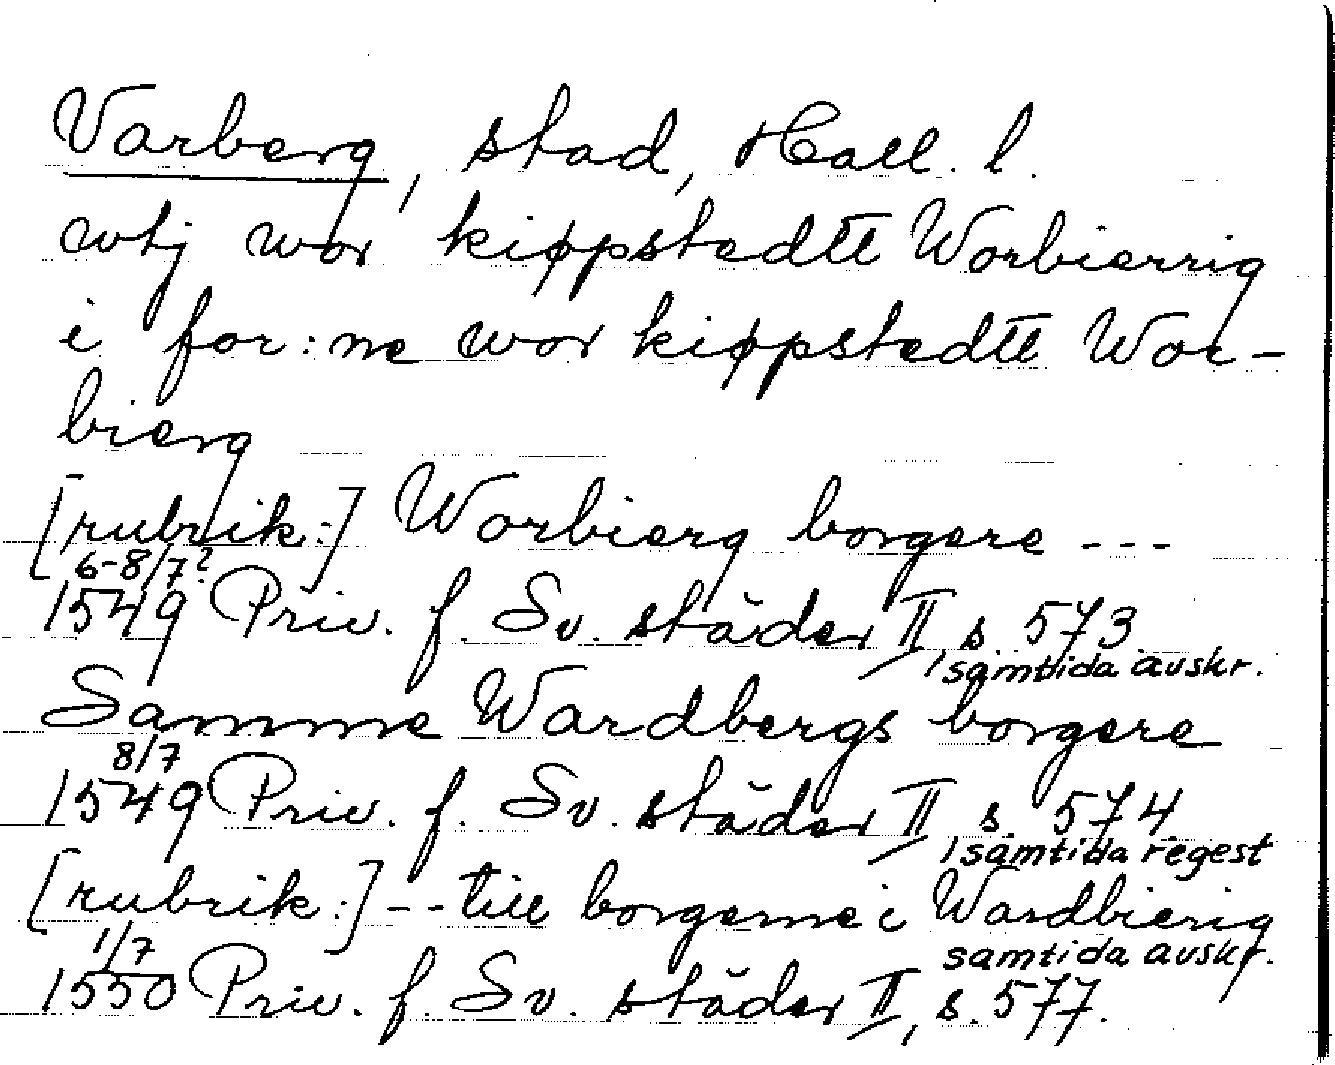 Varberg, stad, Hall. l.
wtj wor kiøpstedtt Worbierrig
i for:ne wor kiøpstedtt Wor-
bierg
[rubrik:] Worbierg borgere ---
6-8/7?
1549 Priv. f. Sv. städer II, s. 573
samtida avskr.
Samme Wardbergs borgere
8/7
1549 Priv. f. Sv. städer II, s. 574
samtida regest
[rubrik:] -- till borgerne i Wardbierig
1/7
samtida avskr.
1550 Priv. f. Sv. städer II, s. 577.